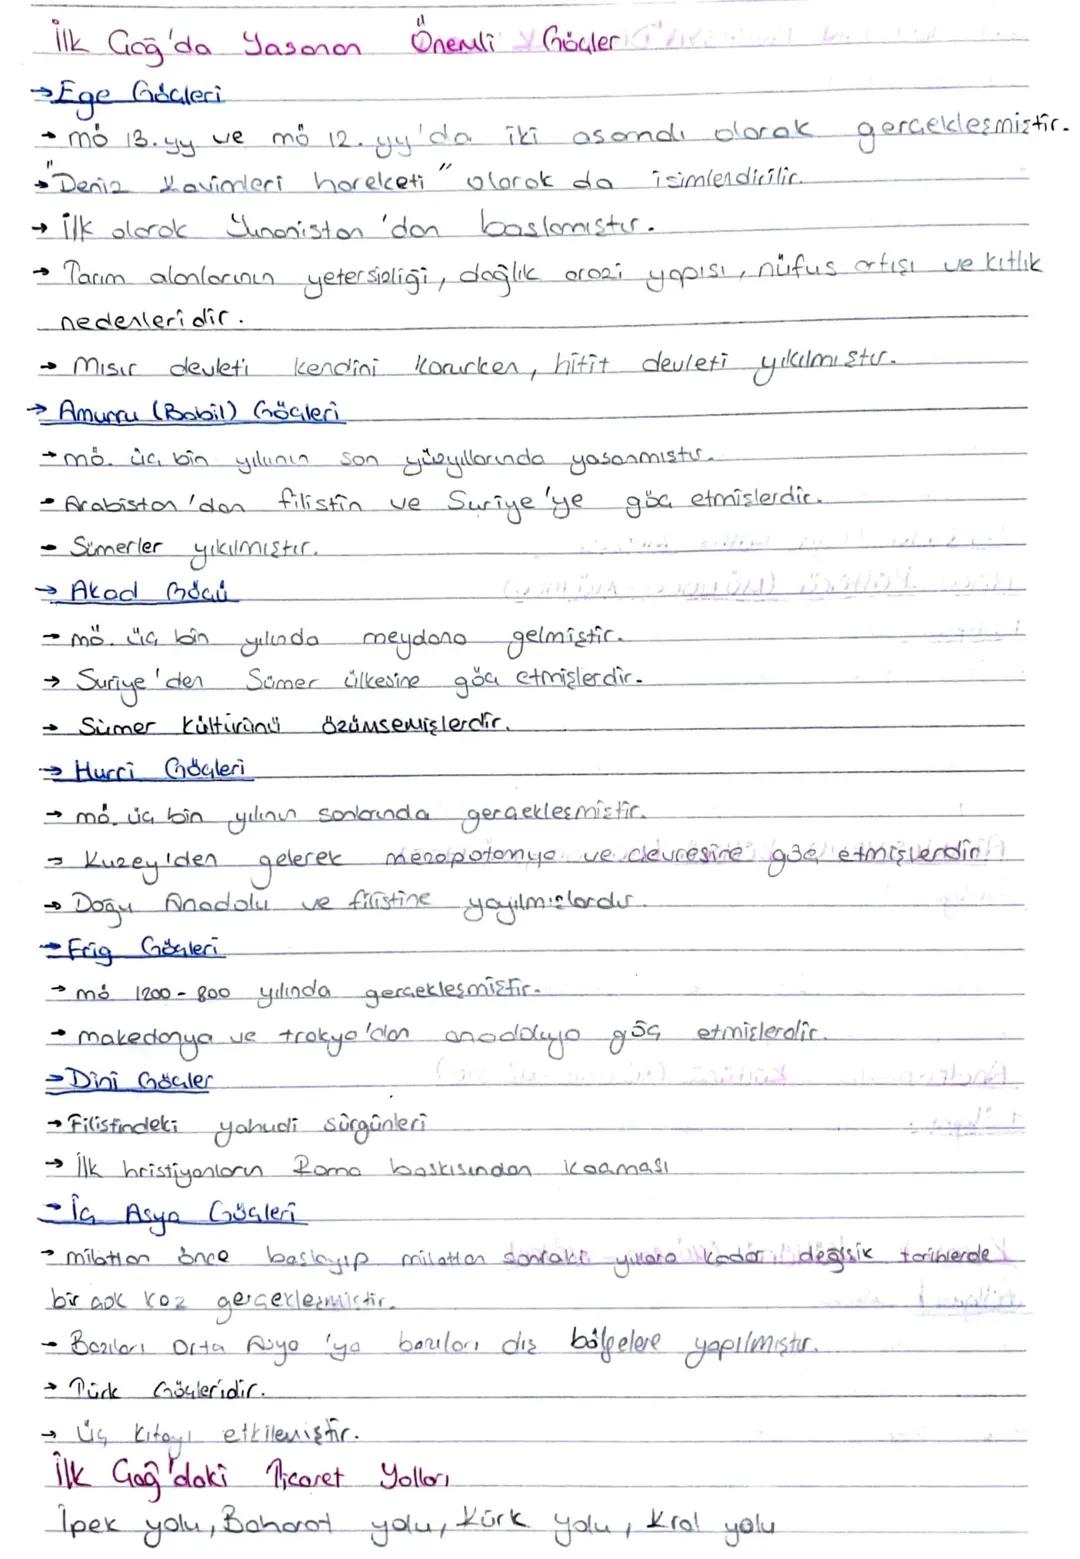 İlk Çağ'da Yaşanan Önemli Göçler
→ Ege Göçleri
→ mö 13. yy ve mö 12. yy'da iki aşamalı olarak gerçekleşmiştir.
→ "Deniz Kavimleri hareketi" olarak da isimlendirilir.
→ İlk olarak Yunanistan'dan başlamıştır.
→ Tarım alanlarının yetersizliği, dağlık arazi yapısı, nüfus artışı ve kıtlık
nedenleridir.
→ Mısır devleti kendini korurken, hitit devleti yıkılmıştır.
→ Amurru (Babil) Göçleri
→ mö. üç bin yılının son yüzyıllarında yaşanmıştır.
→ Arabistan'dan filistin ve Suriye'ye göç etmişlerdir.
→ Sümerler yıkılmıştır.
→ Akad Göçü
→ mö. üç bin yılında meydana gelmiştir.
→ Suriye'den Sümer ülkesine göç etmişlerdir.
→ Sümer kültürünü özümsemişlerdir.
→ Hurri Göçleri
→ mö. üç bin yılının sonlarında gerçekleşmiştir.
→ Kuzey'den gelerek mezopotamya ve çevresine göç etmişlerdir.
→ Doğu Anadolu ve filistine yayılmışlardır.
→ Frig Göçleri
→ mö 1200-800 yılında gerçekleşmiştir.
→ makedonya ve trakya'dan anadoluya göç etmişlerdir.
→ Dini Göçler
→ Filistindeki yahudi sürgünleri
→ İlk hristiyanların Roma baskısından kaçması
→ İç Asya Göçleri
→ milattan önce başlayıp milattan sonraki yıllara kadar değişik tarihlerde
bir çok kez gerçekleşmiştir.
→ Bazıları Orta Asya'ya bazıları dış bölgelere yapılmıştır.
→ Türk Göçleridir.
→ üç kıtayı etkilemiştir.
İlk Çağ'daki Ticaret Yolları
İpek yolu, Baharat yolu, Kürk yolu, Kral yolu